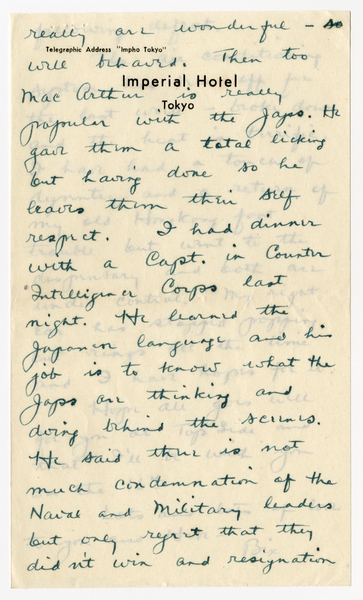 really are wonderful - so
Telegraphic Address "Impho Tokyo"
well behaved. Then too
Imperial Hotel
Mac Arthur is really
Tokyo
popular with the Japs. He
gave them a total licking
but having done so he
leaves them their self
respect. I had dinner
with a Capt. in Counter
Intelligence Corps last
night. He learned the
Japanese language and his
job is to know what the
Japs are thinking and
doing behind the scenes.
He said there is not
much condemnation of the
Naval and Military leaders
but only regret that they
didn't win and resignation